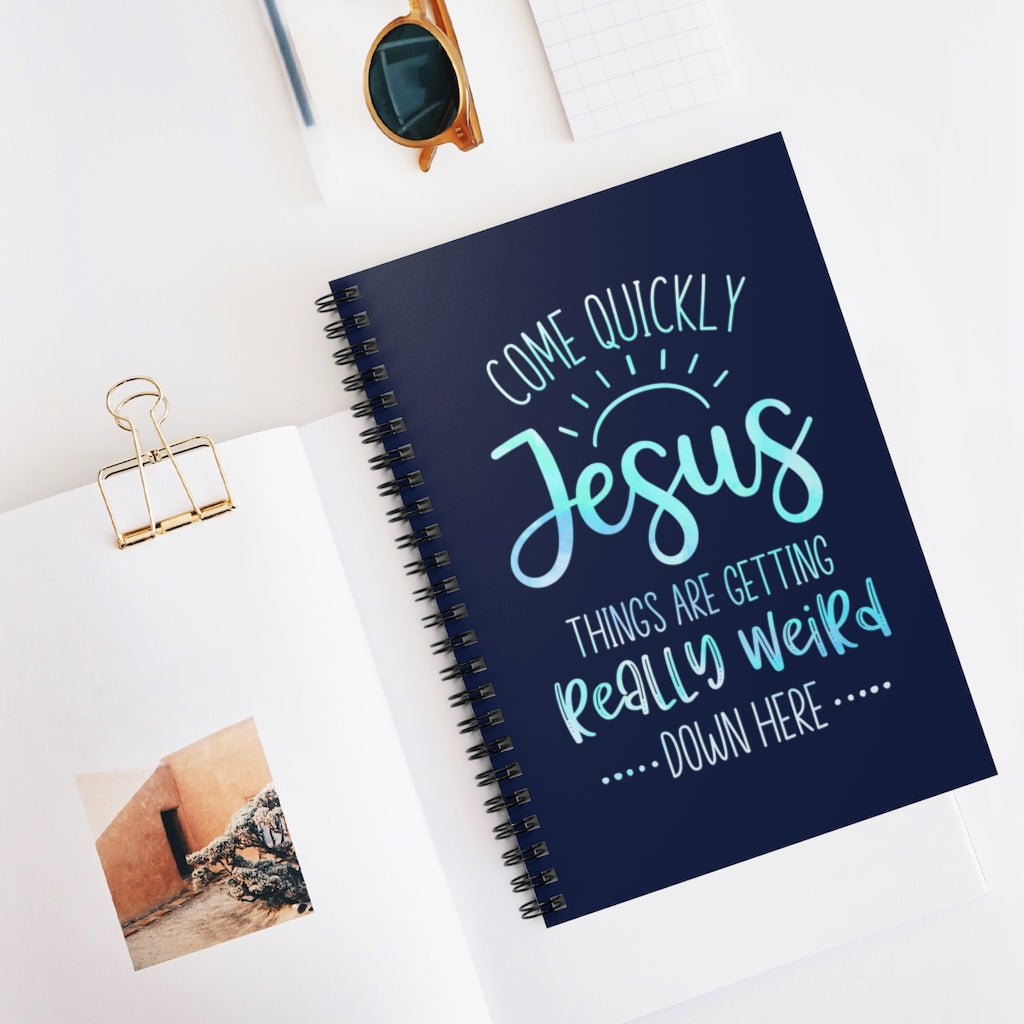 COME QUICKLY
Jesus
THINGS ARE GETTING
Really Weird
DOWN HERE